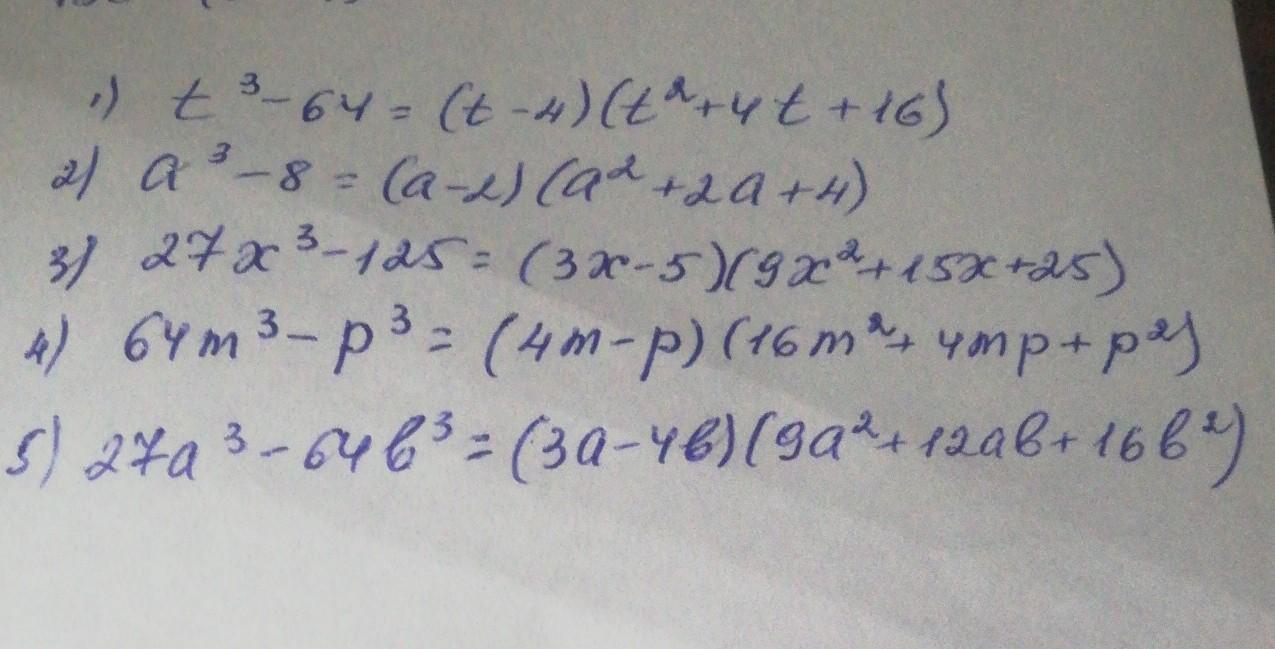 1) t³-64 = (t-4)(t²+4t+16)
2) a³-8 = (a-2)(a²+2a+4)
3) 27x³-125 = (3x-5)(9x²+15x+25)
4) 64m³-p³ = (4m-p)(16m²+4mp+p²)
5) 27a³-64b³ = (3a-4b)(9a²+12ab+16b²)